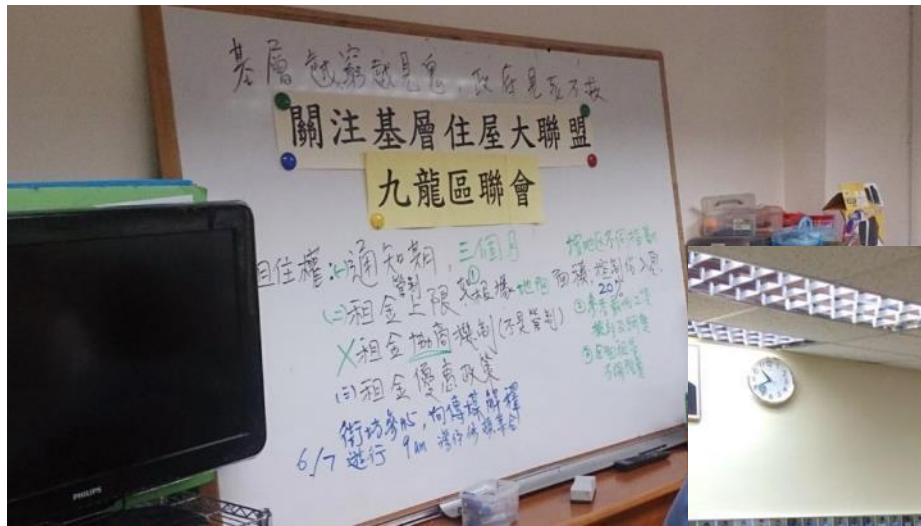 基層越窮越見鬼，政府見死不救
關注基層住屋大聯盟
九龍區聯會
租住權：(一)通知期，三個月
(二)租金管制上限，①根據地區面積，控制佔入息20%
X 租金協商機制(不是管制)
(三)租金優惠政策
按地區不同指數
街坊參與，向傳媒解釋
6/7 遊行 9am 灣仔修頓
PHILIPS